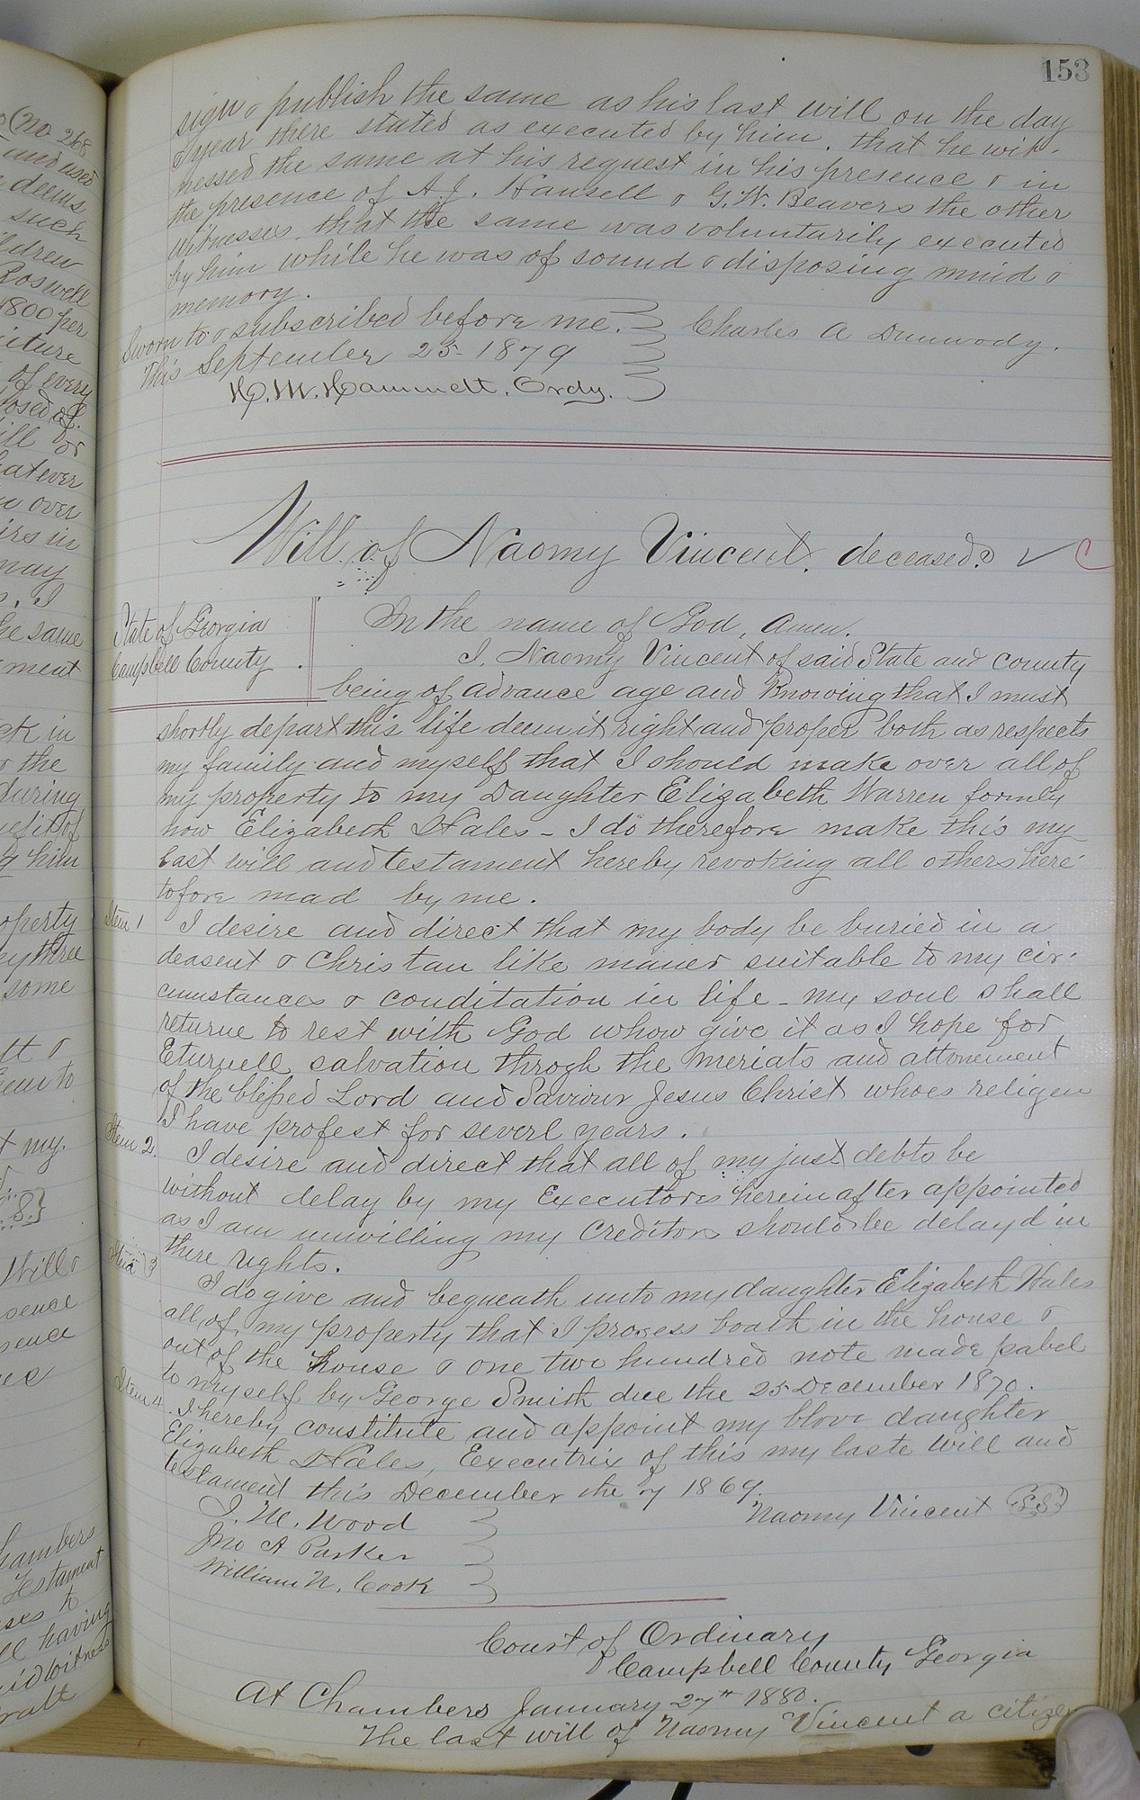 153
sign & publish the same as his last will on the day
& year there stated as executed by him. that he wit-
nessed the same at his request in his presence & in
the presence of A.J. Hansell & G.W. Beavers the other
witnesses. that the same was voluntarily executed
by him while he was of sound & disposing mind &
memory.
Sworn to & subscribed before me.
This September 25 1879
Charles A Dunwody.
H.M. Hammett. Ordy.
Will of Naomy Vincent, deceased.
State of Georgia
Campbell County.
In the name of God, Amen.
I, Naomy Vincent of said State and county
being of advance age and Knowing that I must
shortly depart this life deem it right and proper both as respects
my family and myself that I should make over all of
my property to my Daughter Elizabeth Warren formly
now Elizabeth Hales - I do therefore make this my
Last will and testament hereby revoking all others here-
tofore mad by me.
Item 1 I desire and direct that my body be buried in a
deasent & Christan like maner suitable to my cir-
cumstances & conditation in life - my soul shall
returne to rest with God whow give it as I hope for
Eturnell salvation throgh the meriats and attonement
of the blessed Lord and Saviour Jesus Christ whoes religen
I have profest for severl years.
Item 2. I desire and direct that all of my just debts be
without delay by my Executors herein after appointed
as I am unwilling my Creditors should be delayd in
there rights.
Item 3 I do give and bequeath unto my daughter Elizabeth Hales
all, of, my property that I prosess boath in the house &
out of the house & one two hundred note made pabel
to myself by George Smith due the 25 December 1870.
Item 4. I hereby constitute and appoint my blove daughter
Elizabeth Hales, Executrix of this my laste will and
testament this December the 7 1869.
Naomy Vincent (L.S.)
J. M. Wood
Jno A Parker
William N. Cook
Court of Ordinary
Campbell County Georgia
At Chambers January 27th 1880.
The last will of Naomy Vincent a citizen